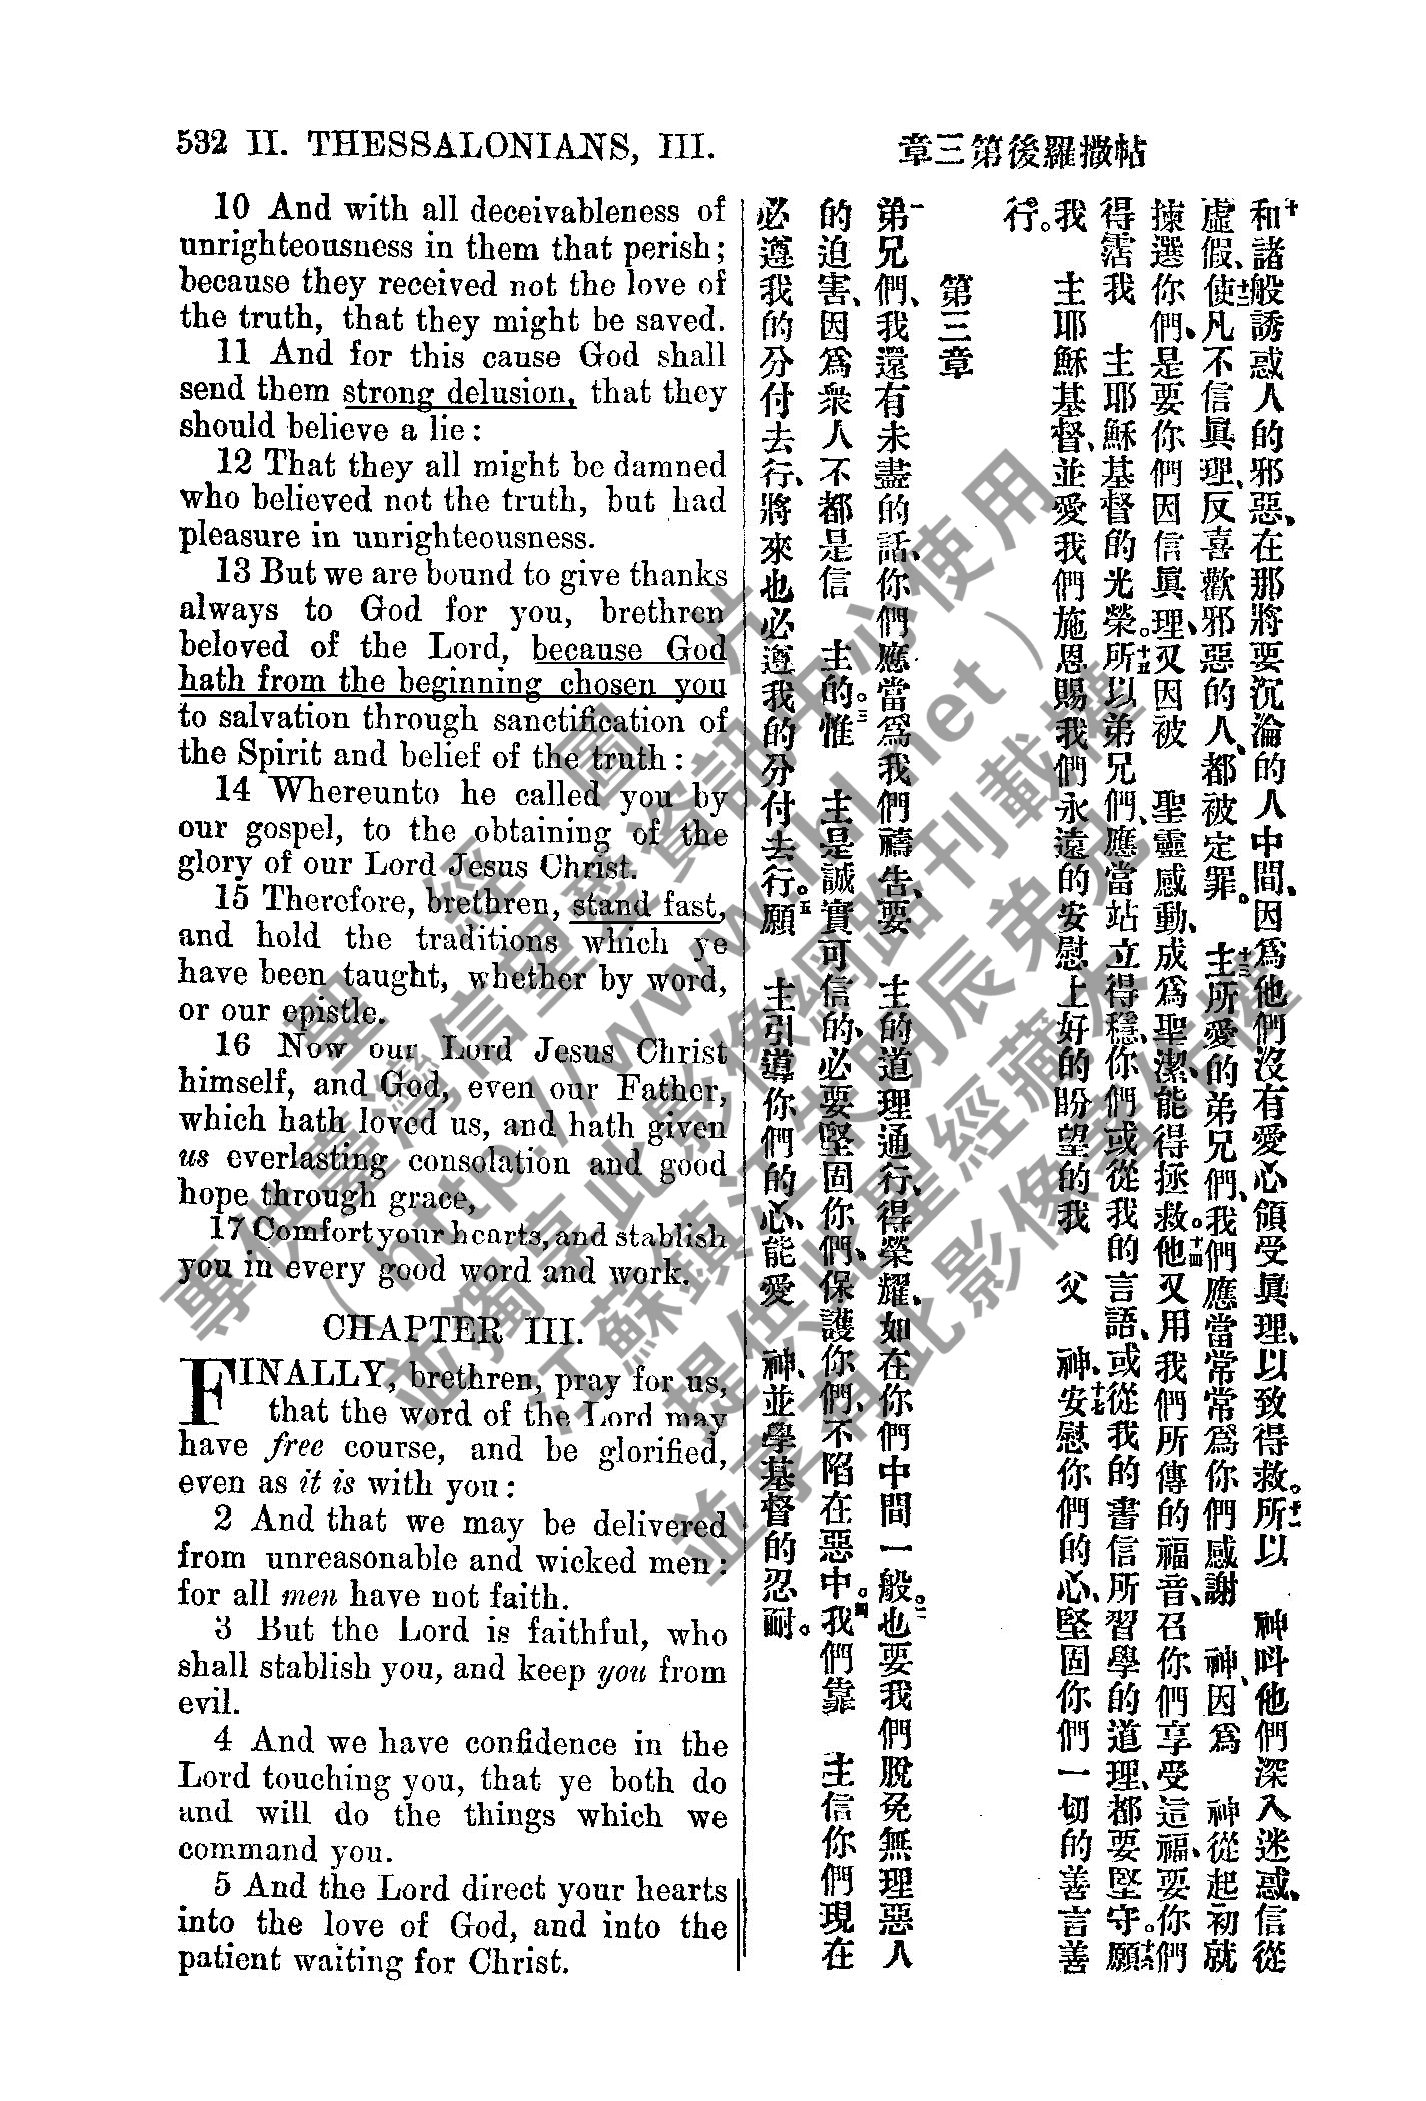 532 II. THESSALONIANS, III.
章三第後羅撒帖
10 And with all deceivableness of
unrighteousness in them that perish;
because they received not the love of
the truth, that they might be saved.
11 And for this cause God shall
send them strong delusion, that they
should believe a lie:
12 That they all might be damned
who believed not the truth, but had
pleasure in unrighteousness.
13 But we are bound to give thanks
always to God for you, brethren
beloved of the Lord, because God
hath from the beginning chosen you
to salvation through sanctification of
the Spirit and belief of the truth:
14 Whereunto he called you by
our gospel, to the obtaining of the
glory of our Lord Jesus Christ.
15 Therefore, brethren, stand fast,
and hold the traditions which ye
have been taught, whether by word,
or our epistle.
16 Now our Lord Jesus Christ
himself, and God, even our Father,
which hath loved us, and hath given
us everlasting consolation and good
hope through grace,
17 Comfort your hearts, and stablish
you in every good word and work.
CHAPTER III.
FINALLY, brethren, pray for us,
that the word of the Lord may
have free course, and be glorified,
even as it is with you:
2 And that we may be delivered
from unreasonable and wicked men:
for all men have not faith.
3 But the Lord is faithful, who
shall stablish you, and keep you from
evil.
4 And we have confidence in the
Lord touching you, that ye both do
and will do the things which we
command you.
5 And the Lord direct your hearts
into the love of God, and into the
patient waiting for Christ.
十和諸般誘惑人的邪惡、在那將要沉淪的人中間、因爲他們沒有愛心領受眞理、以致得救。十一所以 神叫他們深入迷惑、信從
虛假、十二使凡不信眞理、反喜歡邪惡的人、都被定罪。十三主所愛的弟兄們、我們應當常常爲你們感謝 神、因爲 神從起初就
揀選你們、是要你們因信眞理、又因被 聖靈感動、成爲聖潔、能得拯救。十四他又用我們所傳的福音、召你們享受這福、要你們
得霑我 主耶穌基督的光榮。十五所以弟兄們、應當站立得穩、你們或從我的言語、或從我的書信所習學的道理、都要堅守。十六願
我 主耶穌基督、並愛我們施恩賜我們永遠的安慰上好的盼望的我 父 神、十七安慰你們的心、堅固你們一切的善言善
行。
第三章
一弟兄們、我還有未盡的話、你們應當爲我們禱告、要 主的道理通行、得榮耀、如在你們中間一般。二也要我們脫免無理惡人
的迫害、因爲衆人不都是信 主的。三惟 主是誠實可信的、必要堅固你們、保護你們、不陷在惡中。四我們靠 主信你們現在
必遵我的分付去行、將來也必遵我的分付去行。五願 主引導你們的心、能愛 神、並學基督的忍耐。
聖經圖片
專供臺灣信望愛資訊中心使用
（http://www.fhl.net）
並獨享此影像網路刊載權
江蘇鎮江大明辰弟兄
提供此聖經藏本
並享有此影像著作權